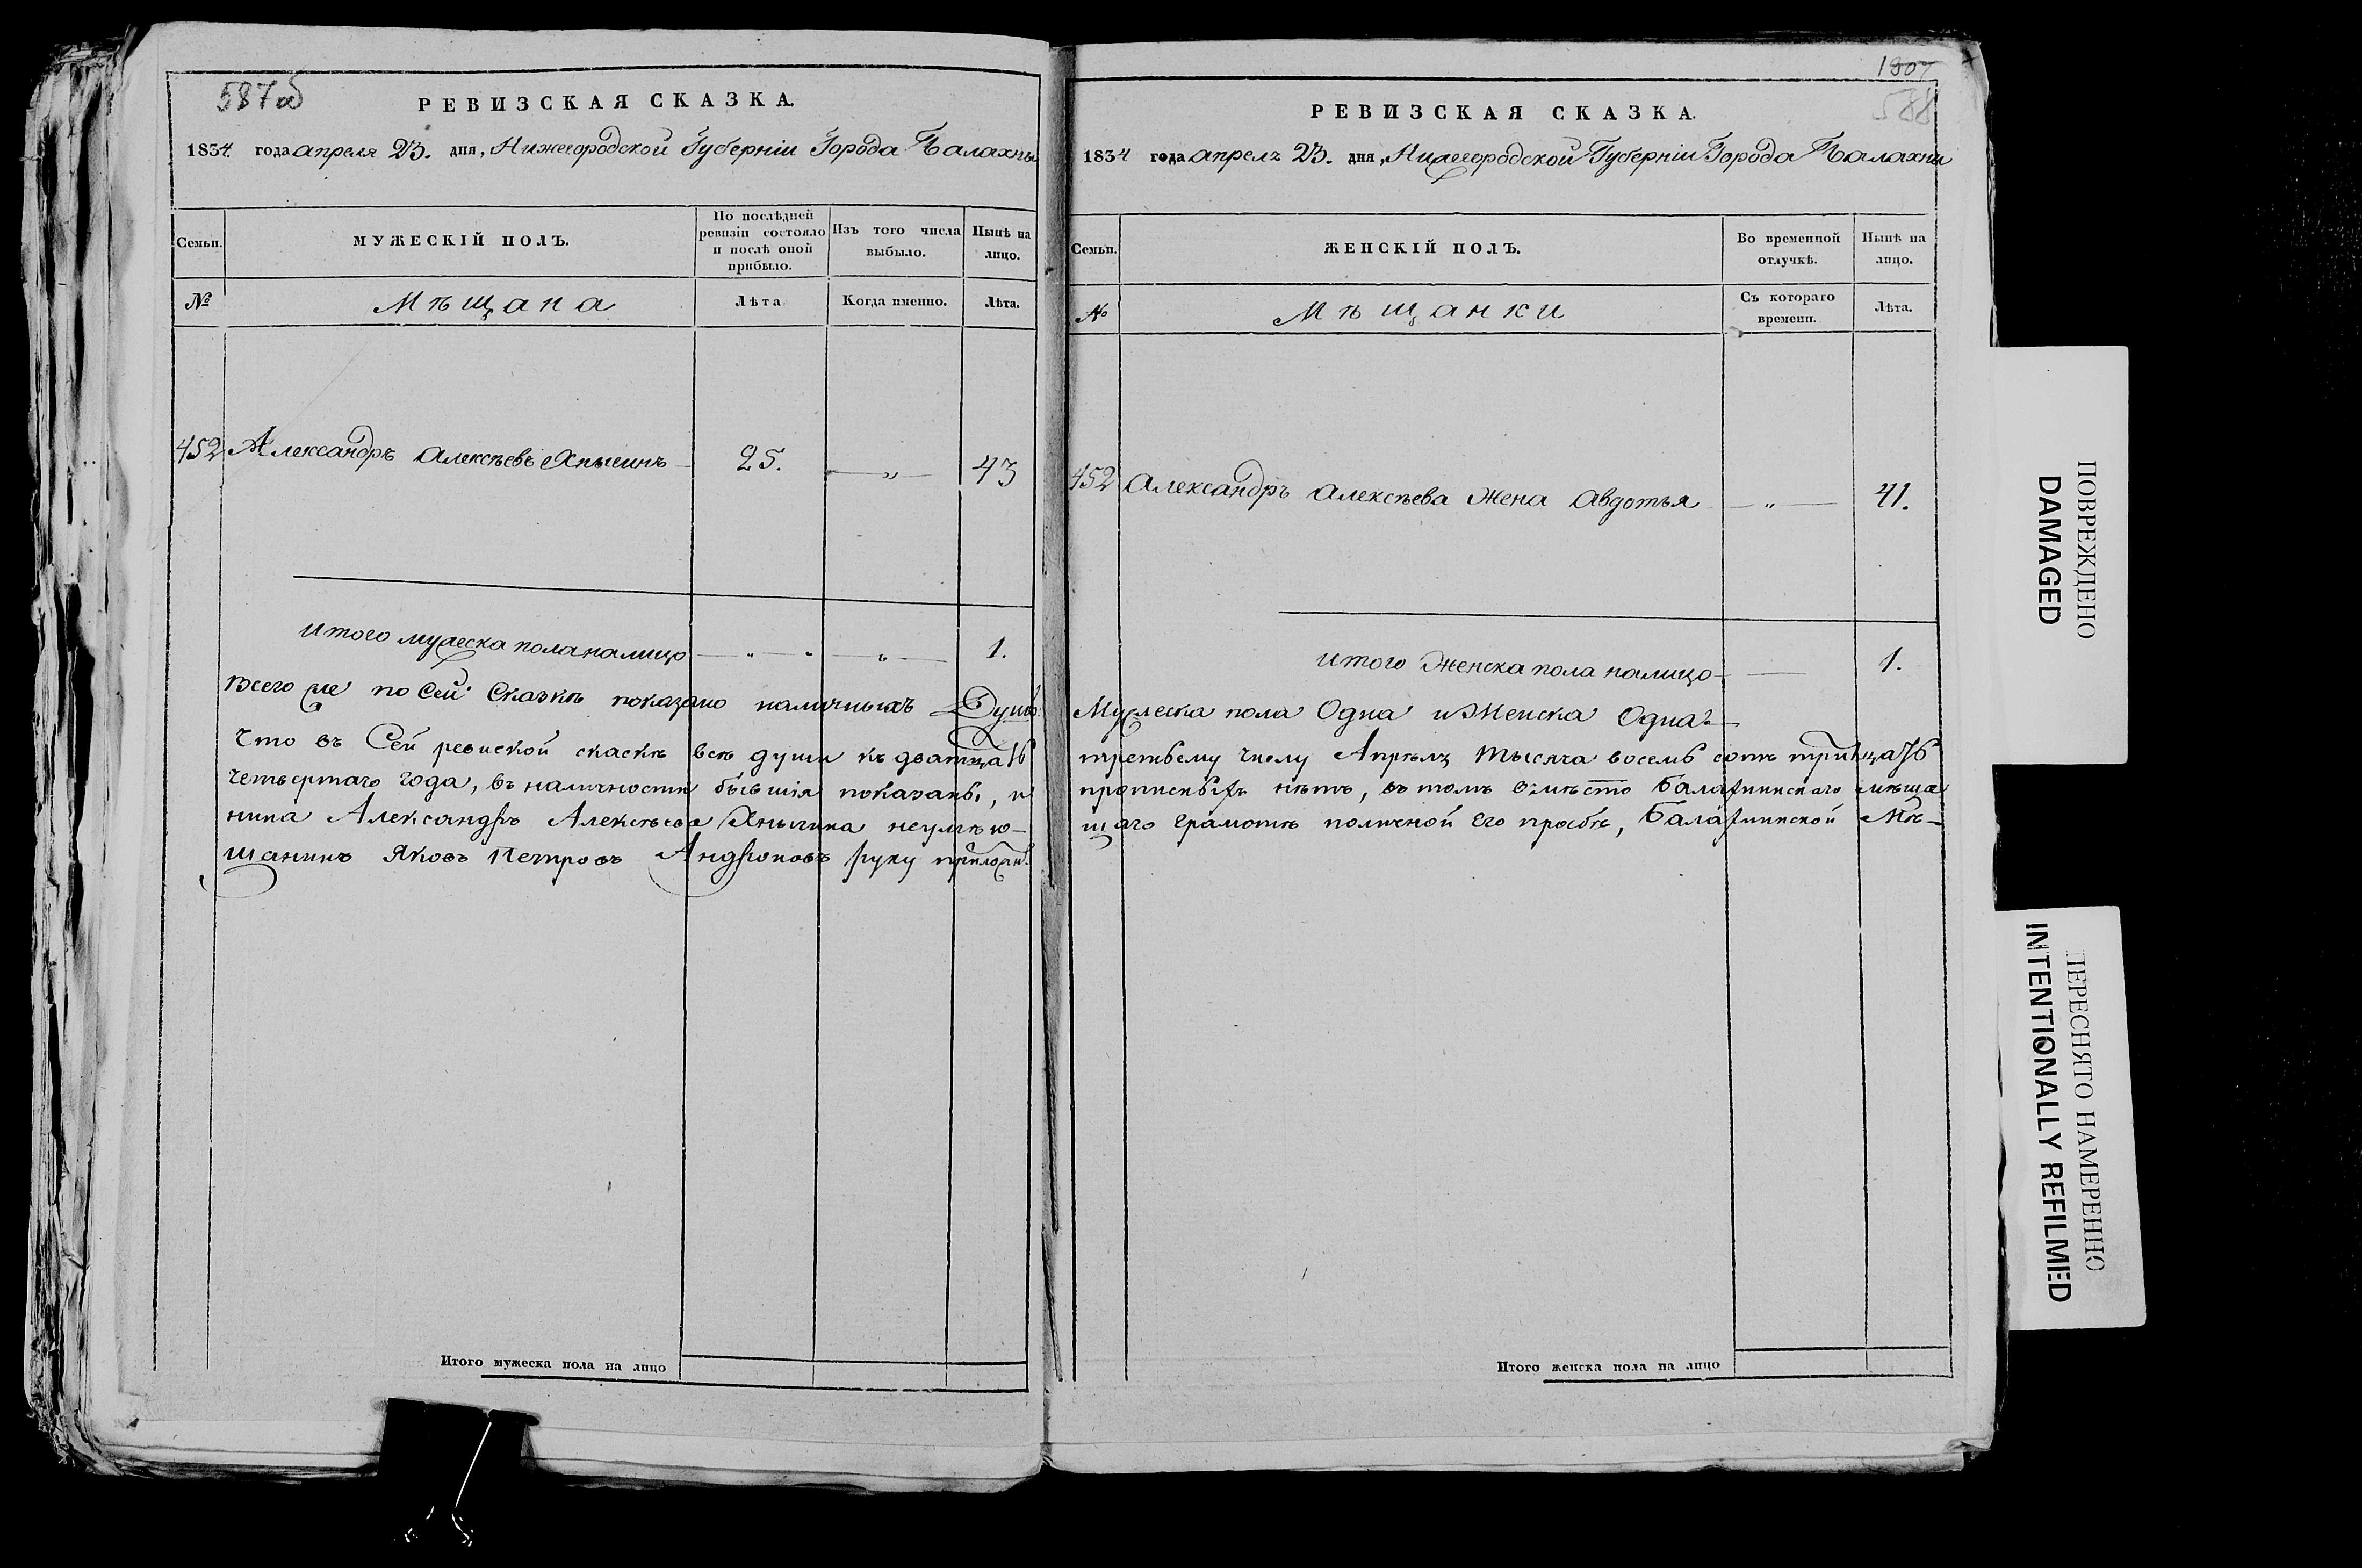 587об
РЕВИЗСКАЯ СКАЗКА.
1834 года апреля 23. дня, Нижегородской Губерніи Города Балахны
Семьи.
МУЖЕСКІЙ ПОЛЪ.
По послѣдней ревизіи состояло и послѣ оной прибыло.
Изъ того числа выбыло.
Нынѣ на лицо.
№
Мѣщана
Лѣта
Когда именно.
Лѣта.
452 Александръ Алексѣевъ Хныкинъ 25. — „ — 43
итого мужеска пола налицо — „ — „ — 1.
Всего же по сей сказкѣ показано наличныхъ Душъ:
Что въ Сей ревиской скаскѣ всѣ души къ дватцать
четвертаго года, въ наличности бывшія показаны, и
нина Александръ Алексѣева Хныкина неумѣю-
щанинъ Яковъ Петровъ Андроновъ руку приложилъ
Итого мужеска пола на лицо
1807
588
РЕВИЗСКАЯ СКАЗКА.
1834 года апреля 23. дня, Нижегородской Губерніи Города Балахны
Семьи.
ЖЕНСКІЙ ПОЛЪ.
Во временной отлучкѣ.
Нынѣ на лицо.
№
Мѣщанки
Съ котораго времени.
Лѣта.
452 Александръ Алексѣева жена Авдотья — „ — 41.
итого Женска пола налицо — 1.
Мужеска пола Одна и Женска Одна
третьему числу Апрѣля тысяча восемь сотъ тритцать
прописныхъ нѣтъ, въ томъ вмѣсто Балахнинскаго мѣща
щаго грамотѣ поличной его прозбѣ, Балахнинской Мѣ-
Итого женска пола на лицо
ПОВРЕЖДЕНО
DAMAGED
ПЕРЕСНЯТО НАМЕРЕННО
INTENTIONALLY REFILMED